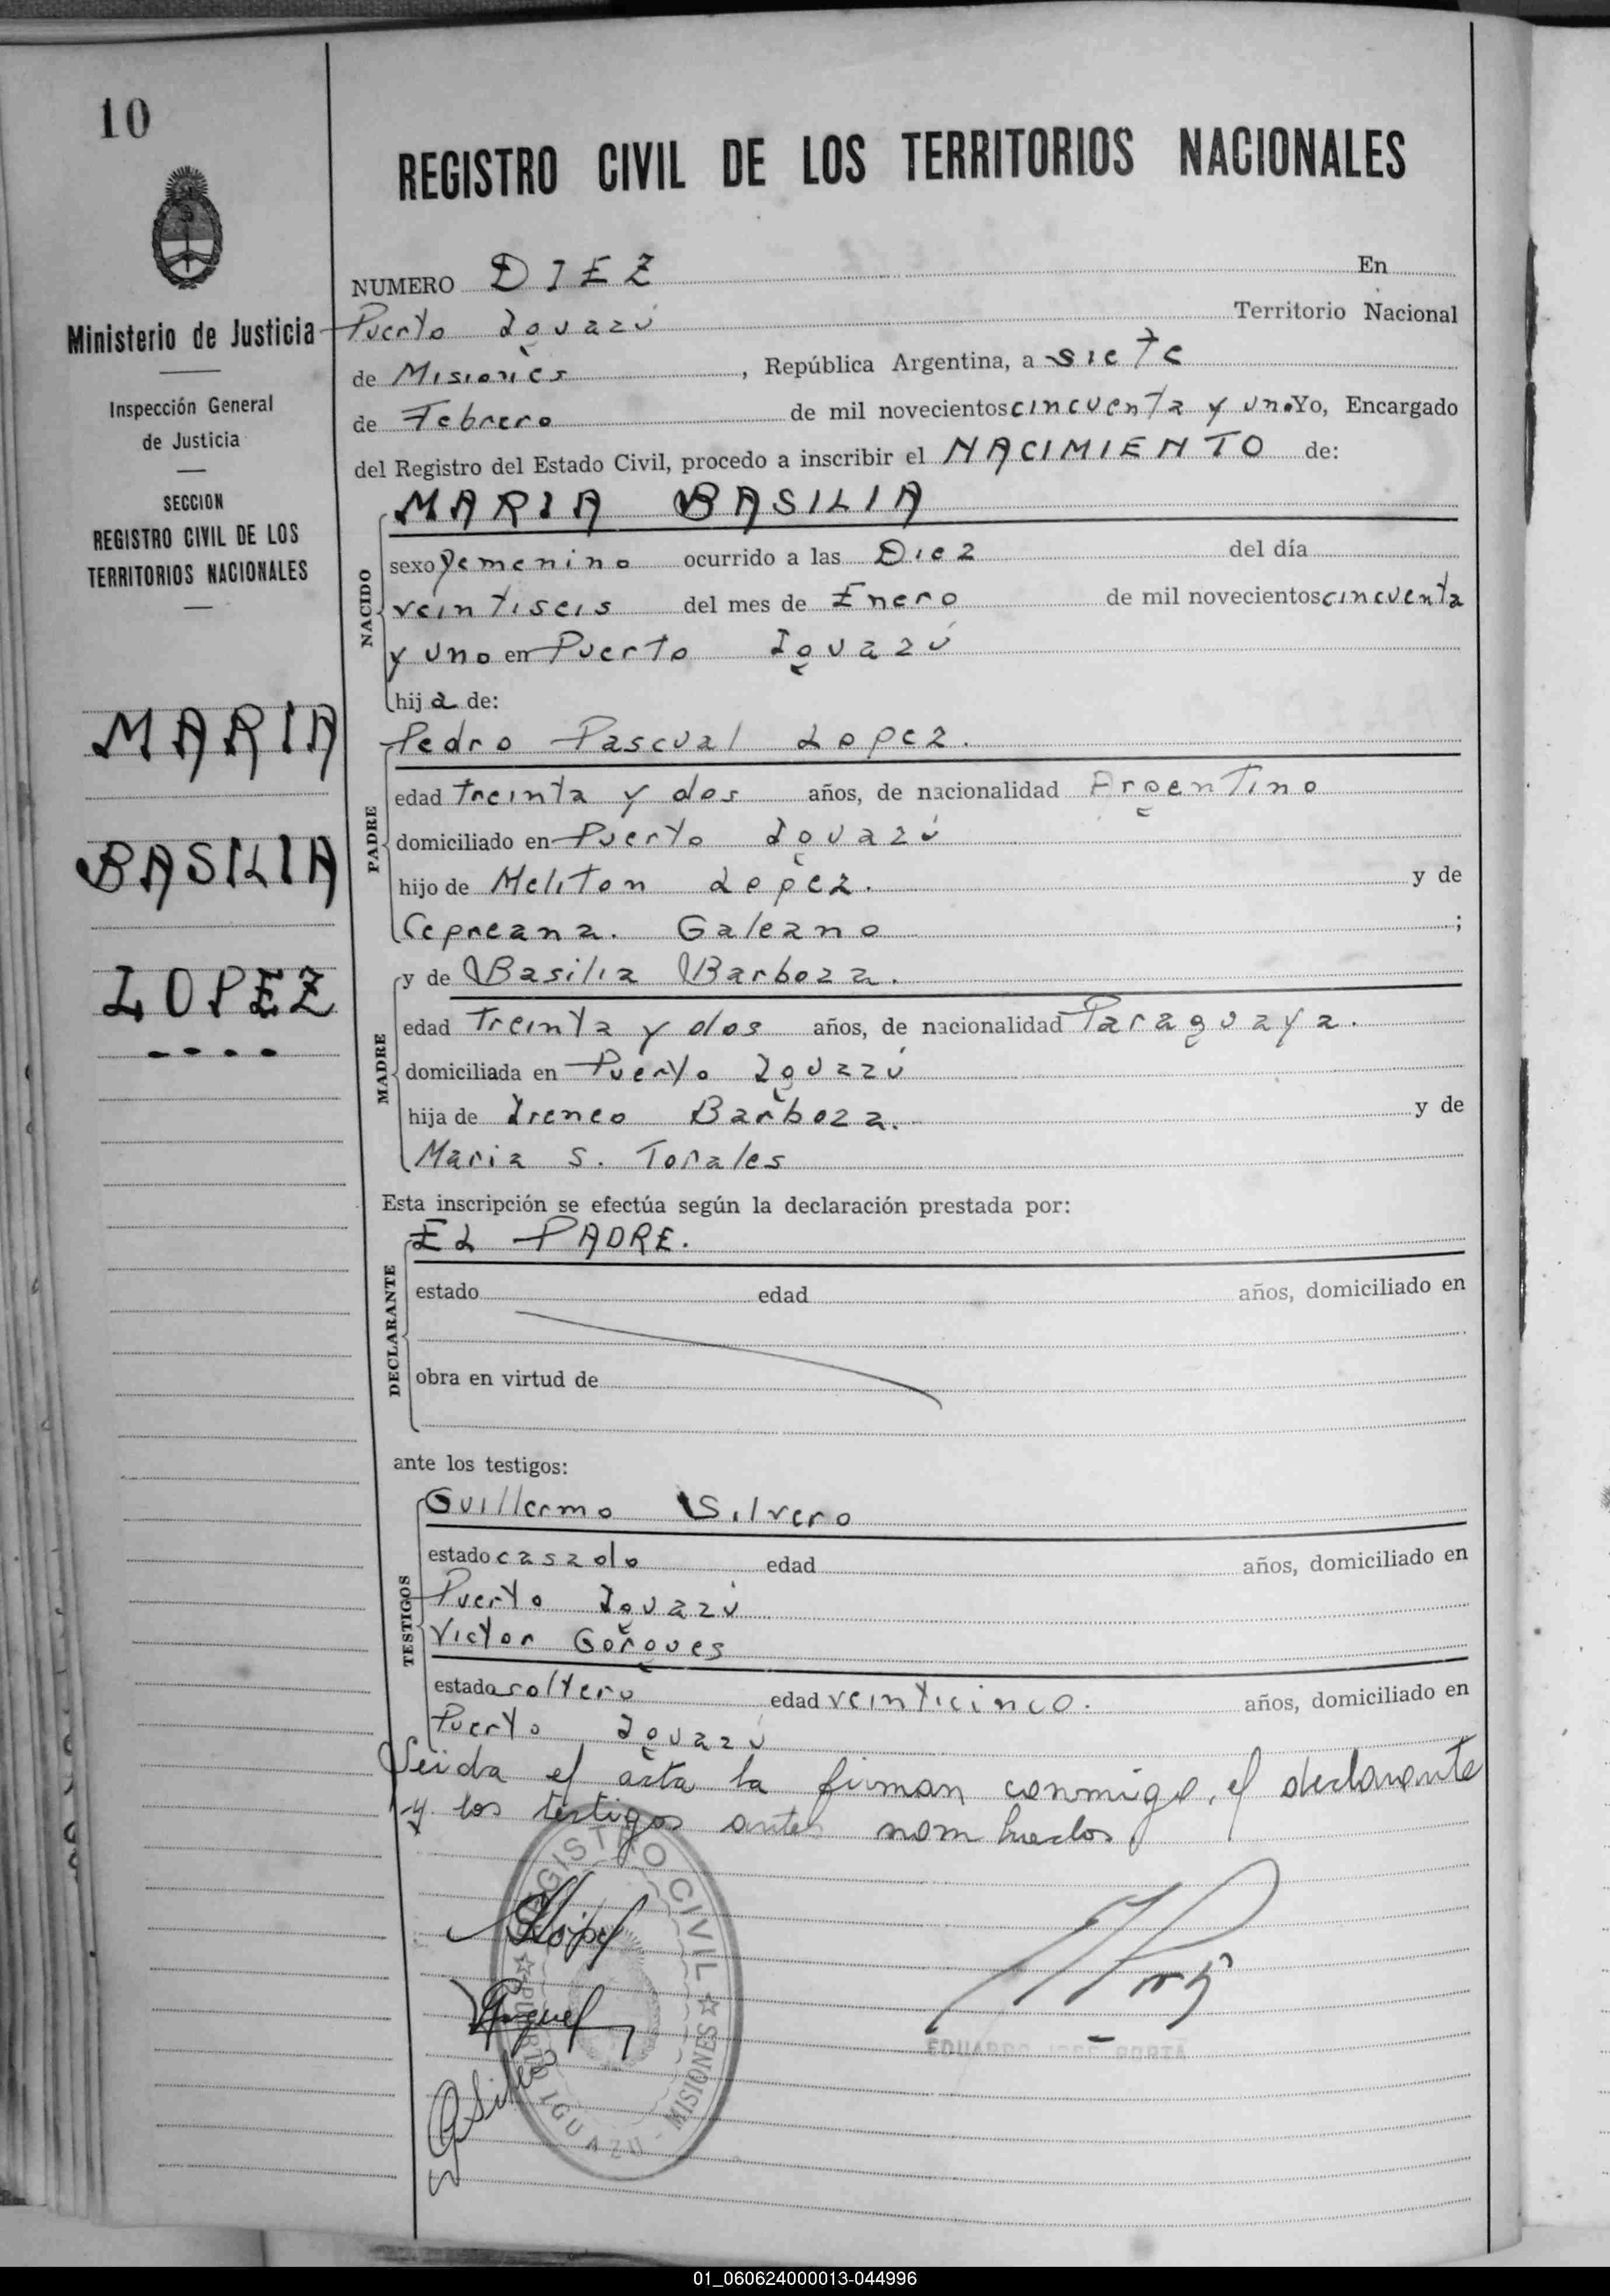 10
REGISTRO CIVIL DE LOS TERRITORIOS NACIONALES
Ministerio de Justicia
Inspección General
de Justicia
SECCION
REGISTRO CIVIL DE LOS
TERRITORIOS NACIONALES
MARIA
BASILIA
LOPEZ
NUMERO DIEZ En
Puerto Iguazú Territorio Nacional
de Misiones, República Argentina, a siete
de Febrero de mil novecientos cincuenta y uno Yo, Encargado
del Registro del Estado Civil, procedo a inscribir el NACIMIENTO de:
NACIDO
MARIA BASILIA
sexo femenino ocurrido a las Diez del día
veintiseis del mes de Enero de mil novecientos cincuenta
y uno en Puerto Iguazú
hija de:
PADRE
Pedro Pascual Lopez.
edad treinta y dos años, de nacionalidad Argentino
domiciliado en Puerto Iguazú
hijo de Meliton Lopez. y de
Cepreana. Galeano ;
MADRE
y de Basilia Barboza.
edad Treinta y dos años, de nacionalidad Paraguaya.
domiciliada en Puerto Iguazú
hija de Ireneo Barboza. y de
Maria S. Torales
Esta inscripción se efectúa según la declaración prestada por:
DECLARANTE
EL PADRE.
estado edad años, domiciliado en
obra en virtud de
ante los testigos:
TESTIGOS
Guillermo Silvero
estado casado edad años, domiciliado en
Puerto Iguazú
Victor Gorgues
estado soltero edad veinticinco. años, domiciliado en
Puerto Iguazú
Leida el acta la firman conmigo, el declarante
y los testigos antes nombrados
REGISTRO CIVIL
PUERTO IGUAZU - MISIONES
EDUARDO JOSÉ PORTA
01_060624000013-044996